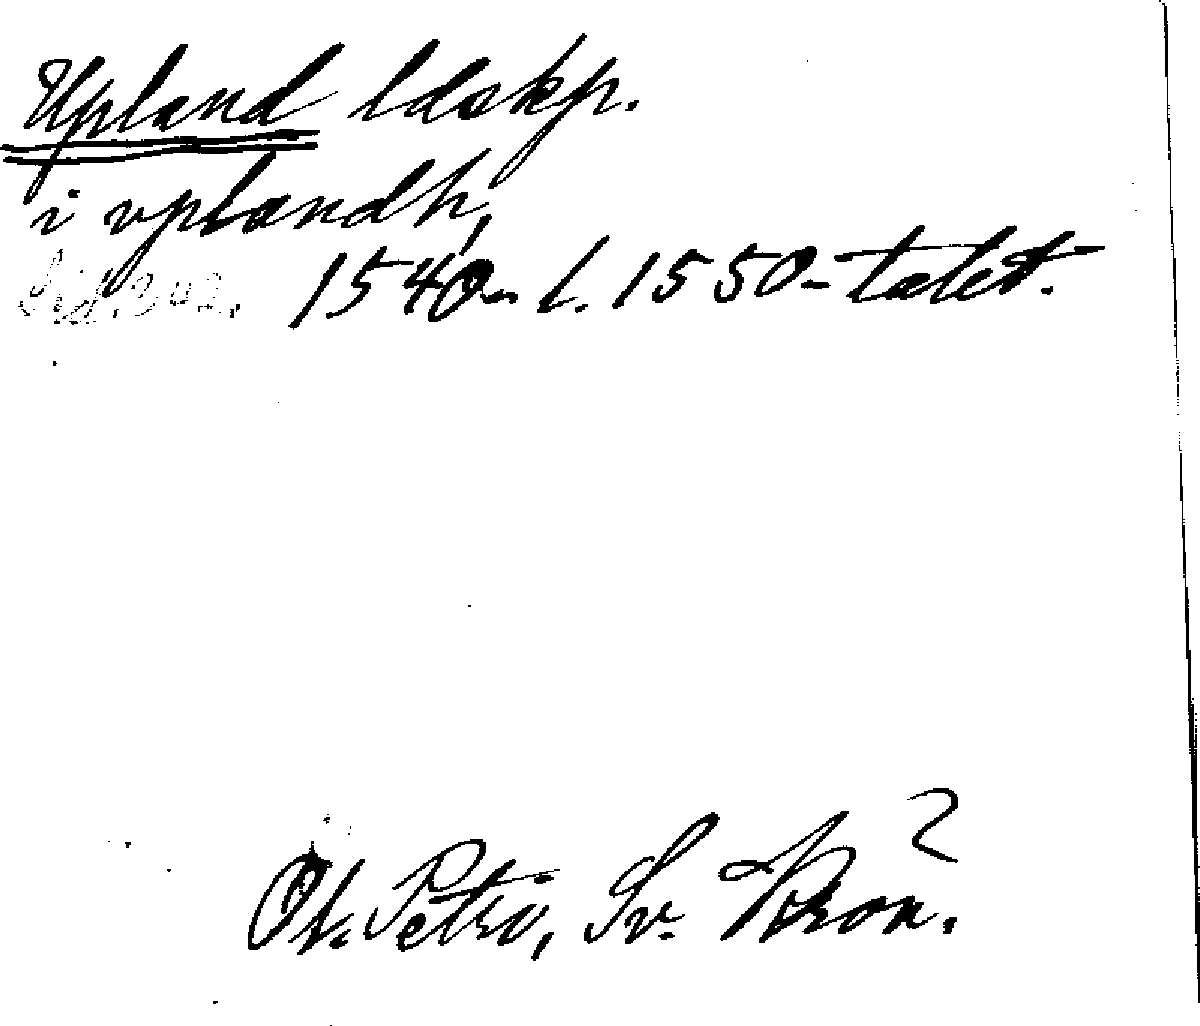 Upland ldskp.
i vplandh,
sid. 302. 1540- l. 1550-talet.
2
Ol. Petri, Sv. Krön.